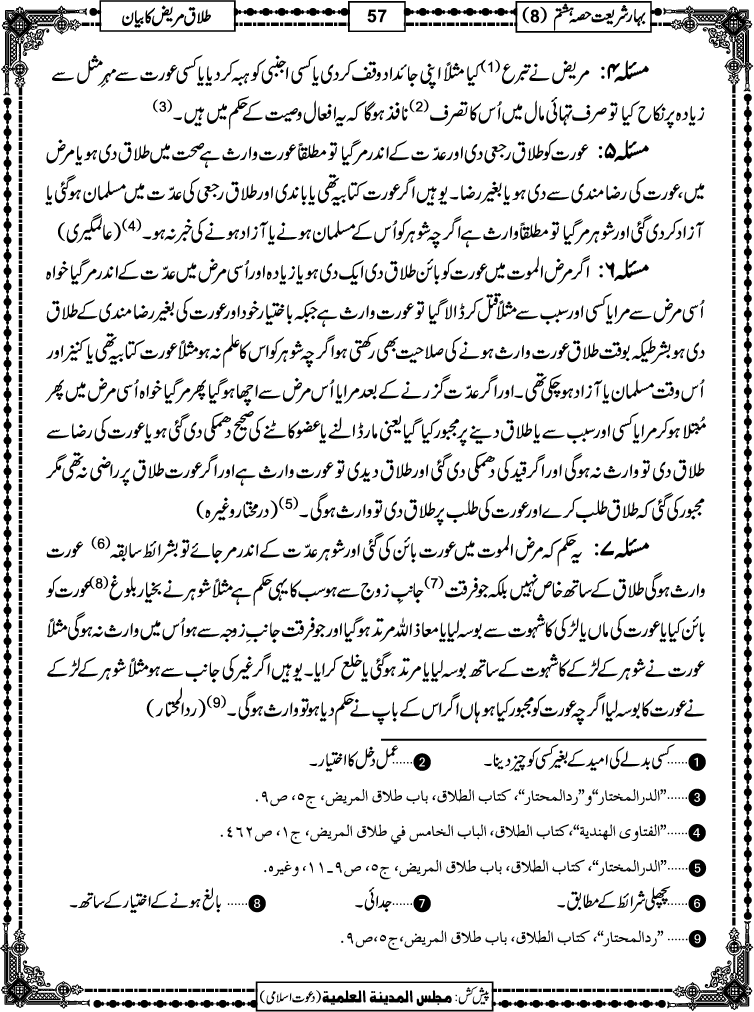 بہارِ شریعت حصہ ہشتم (8)
57
طلاق مریض کا بیان
مسئلہ ۴: مریض نے تبرع (1) کیا مثلاً اپنی جائداد وقف کر دی یا کسی اجنبی کو ہبہ کر دیا یا کسی عورت سے مہرِ مثل سے
زیادہ پر نکاح کیا تو صرف تہائی مال میں اُس کا تصرف (2) نافذ ہوگا کہ یہ افعال وصیت کے حکم میں ہیں۔ (3)
مسئلہ ۵: عورت کو طلاق رجعی دی اور عدّت کے اندر مر گیا تو مطلقاً عورت وارث ہے صحت میں طلاق دی ہو یا مرض
میں، عورت کی رضا مندی سے دی ہو یا بغیر رضا۔ یوہیں اگر عورت کتابیہ تھی یا باندی اور طلاق رجعی کی عدّت میں مسلمان ہوگئی یا
آزاد کر دی گئی اور شوہر مر گیا تو مطلقاً وارث ہے اگرچہ شوہر کو اُس کے مسلمان ہونے یا آزاد ہونے کی خبر نہ ہو۔ (4) (عالمگیری)
مسئلہ ۶: اگر مرض الموت میں عورت کو بائن طلاق دی ایک دی ہو یا زیادہ اور اُسی مرض میں عدّت کے اندر مر گیا خواہ
اُسی مرض سے مرا یا کسی اور سبب سے مثلاً قتل کر ڈالا گیا تو عورت وارث ہے جبکہ باختیار خود اور عورت کی بغیر رضا مندی کے طلاق
دی ہو بشرطیکہ بوقت طلاق عورت وارث ہونے کی صلاحیت بھی رکھتی ہو اگرچہ شوہر کو اس کا علم نہ ہو مثلاً عورت کتابیہ تھی یا کنیز اور
اُس وقت مسلمان یا آزاد ہو چکی تھی۔ اور اگر عدّت گزرنے کے بعد مرا یا اُس مرض سے اچھا ہوگیا پھر مر گیا خواہ اُسی مرض میں پھر
مُبتلا ہو کر مرا یا کسی اور سبب سے یا طلاق دینے پر مجبور کیا گیا یعنی مار ڈالنے یا عضو کاٹنے کی صحیح دھمکی دی گئی ہو یا عورت کی رضا سے
طلاق دی تو وارث نہ ہوگی اور اگر قید کی دھمکی دی گئی اور طلاق دیدی تو عورت وارث ہے اور اگر عورت طلاق پر راضی نہ تھی مگر
مجبور کی گئی کہ طلاق طلب کرے اور عورت کی طلب پر طلاق دی تو وارث ہوگی۔ (5) (درمختار وغیرہ)
مسئلہ ۷: یہ حکم کہ مرض الموت میں عورت بائن کی گئی اور شوہر عدّت کے اندر مر جائے تو بشرائط سابقہ (6) عورت
وارث ہوگی طلاق کے ساتھ خاص نہیں بلکہ جو فرقت (7) جانبِ زوج سے ہو سب کا یہی حکم ہے مثلاً شوہر نے بخیار بلوغ (8) عورت کو
بائن کیا یا عورت کی ماں یا لڑکی کا شہوت سے بوسہ لیا یا معاذ اللہ مرتد ہوگیا اور جو فرقت جانبِ زوجہ سے ہو اُس میں وارث نہ ہوگی مثلاً
عورت نے شوہر کے لڑکے کا شہوت کے ساتھ بوسہ لیا یا مرتد ہوگئی یا خلع کرایا۔ یوہیں اگر غیر کی جانب سے ہو مثلاً شوہر کے لڑکے
نے عورت کا بوسہ لیا اگرچہ عورت کو مجبور کیا ہو ہاں اگر اس کے باپ نے حکم دیا ہو تو وارث ہوگی۔ (9) (ردالمحتار)
1 ......کسی بدلے کی امید کے بغیر کسی کو چیز دینا۔ 2 ......عمل دخل کا اختیار۔
3 ......”الدرالمختار“و”ردالمحتار“، کتاب الطلاق، باب طلاق المریض، ج٥، ص٩.
4 ......”الفتاوی الھندیة“،کتاب الطلاق، الباب الخامس في طلاق المریض، ج١، ص٤٦٢.
5 ......”الدرالمختار“، کتاب الطلاق، باب طلاق المریض، ج٥، ص٩۔١١، وغیرہ.
6 ......پچھلی شرائط کے مطابق۔ 7 ......جدائی۔ 8 ...... بالغ ہونے کے اختیار کے ساتھ۔
9 ...... ”ردالمحتار“، کتاب الطلاق، باب طلاق المریض،ج٥،ص٩.
پیش کش: مجلس المدینة العلمیة (دعوت اسلامی)